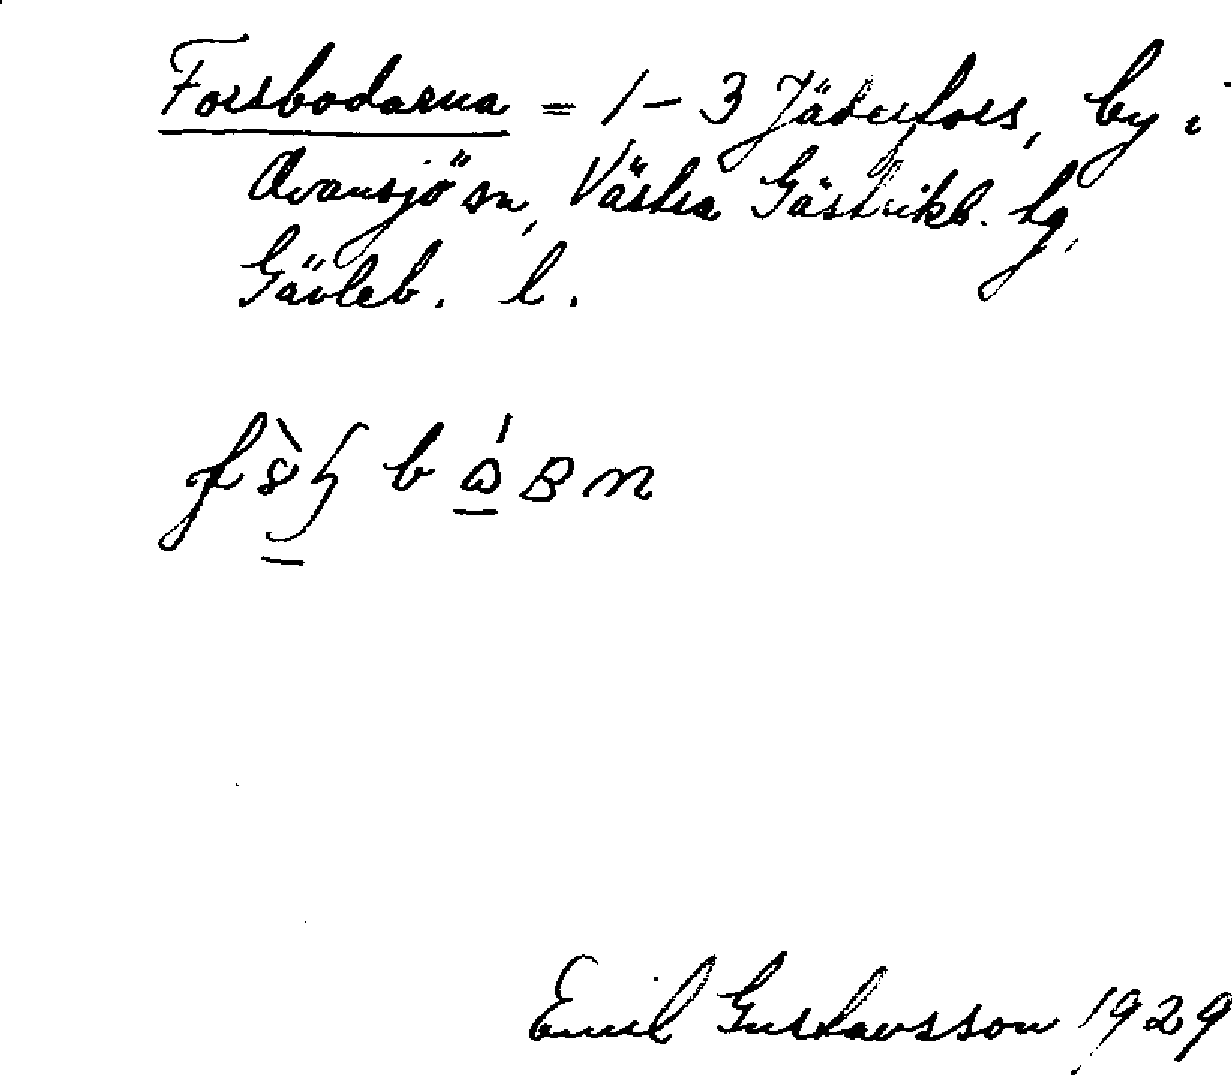 Forsbodarna = 1-3 Jäderfors, by i
Ovansjö sn, Västra Gästrikl. hg,
Gävleb. l.
Emil Gustavsson 1929